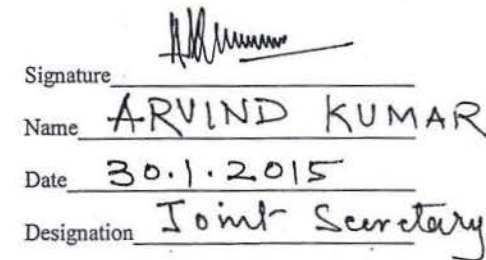 Signature
Name ARVIND KUMAR
Date 30.1.2015
Designation Joint Secretary